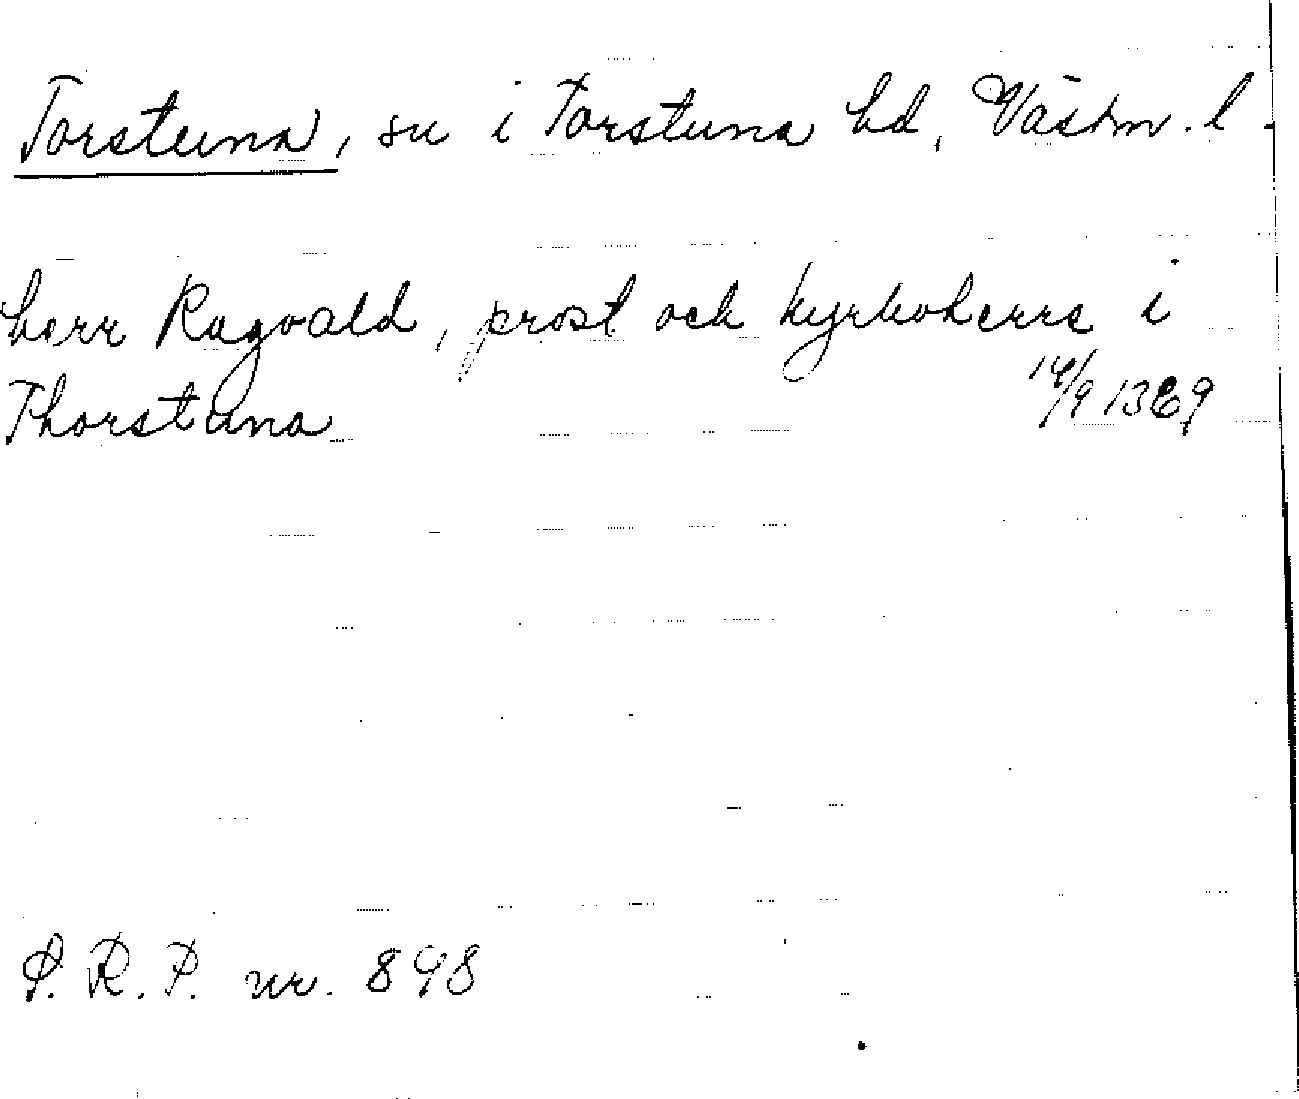 Torstuna, sn i Torstuna hd, Västm. l.
herr Ragvald, prost och kyrkoherre i
Thorstuna 14/9 1369
S.R.P. nr. 898